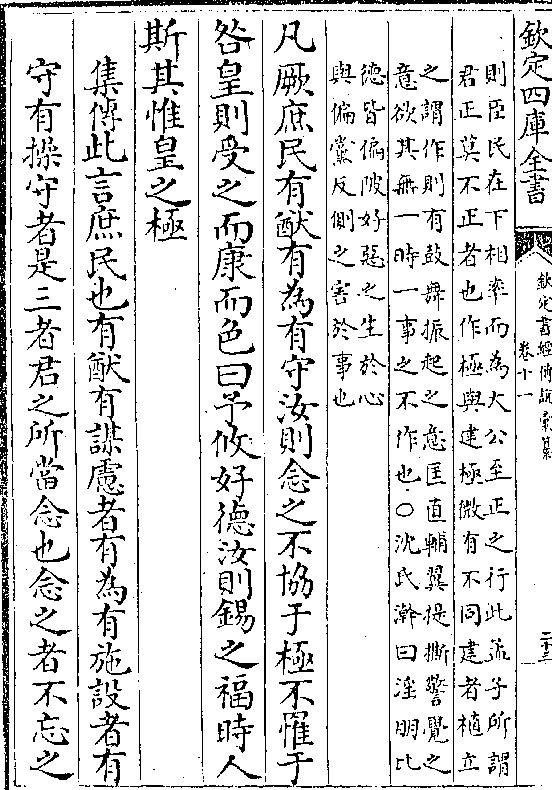 欽定四庫全書
欽定書經傳說彙纂
卷十一
二十三
則臣民在下相率而為大公至正之行此孟子所謂
君正莫不正者也作極與建極微有不同建者植立
之謂作則有鼓舞振起之意匡直輔翼提撕警覺之
意欲其無一時一事之不作也○沈氏澣曰淫朋比
德皆偏陂好惡之生於心
與偏黨反側之害於事也
凡厥庶民有猷有為有守汝則念之不協于極不罹于
咎皇則受之而康而色曰予攸好德汝則錫之福時人
斯其惟皇之極
集傳此言庶民也有猷有謀慮者有為有施設者有
守有操守者是三者君之所當念也念之者不忘之